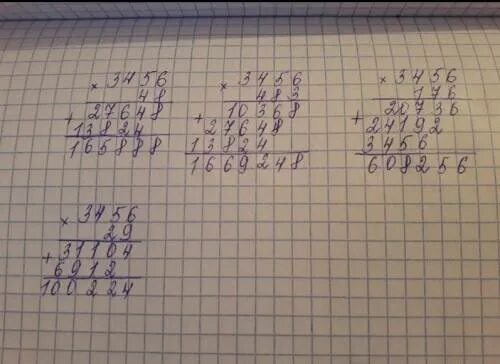 × 3456
48
+ 27648
13824
165888
× 3456
483
+ 10368
27648
13824
1669248
× 3456
176
+ 20736
24192
3456
608256
× 3456
29
+ 31104
6912
100224